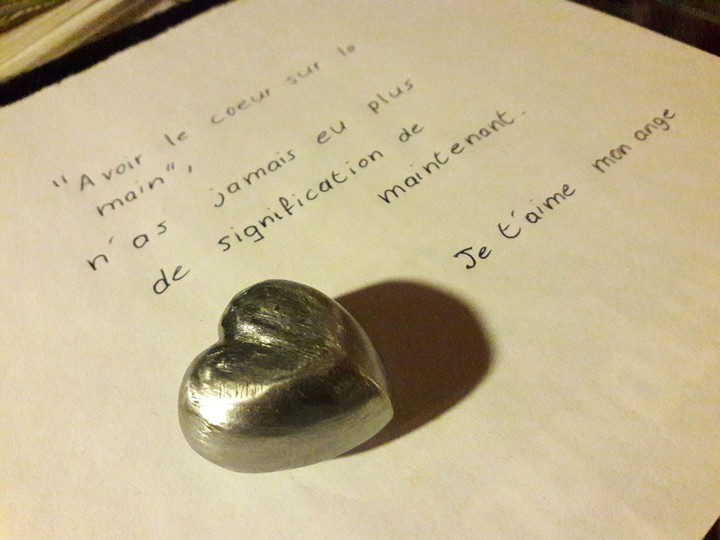 "Avoir le coeur sur la
main",
n'as jamais eu plus
de signification de
maintenant.
Je t'aime mon ange